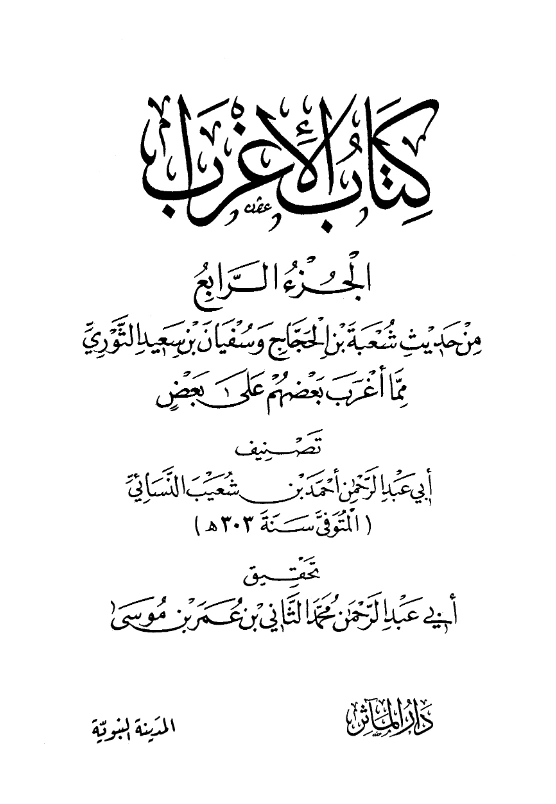 كِتَابُ الإِغْرَابِ
الْجُزْءُ الرَّابِعُ
مِنْ حَدِيْثِ شُعْبَةَ بْنِ الْحَجَّاجِ وَسُفْيَانَ بْنِ سَعِيدٍ الثَّوْرِيِّ
مِمَّا أَغْرَبَ بَعْضُهُمْ عَلَى بَعْضٍ
تَصْنِيف
أَبِي عَبْدِ الرَّحْمٰنِ أَحْمَدَ بْنِ شُعَيْبٍ النَّسَائِيِّ
(الْمُتَوَفَّى سَنَةَ ٣٠٣ هـ)
تَحْقِيق
أَبِي عَبْدِ الرَّحْمٰنِ مُحَمَّد الثَّانِي بْنِ عُمَرَ بْنِ مُوسَى
دَارُ الْمَآثِرِ
المَدينَة النَّبَويَّة